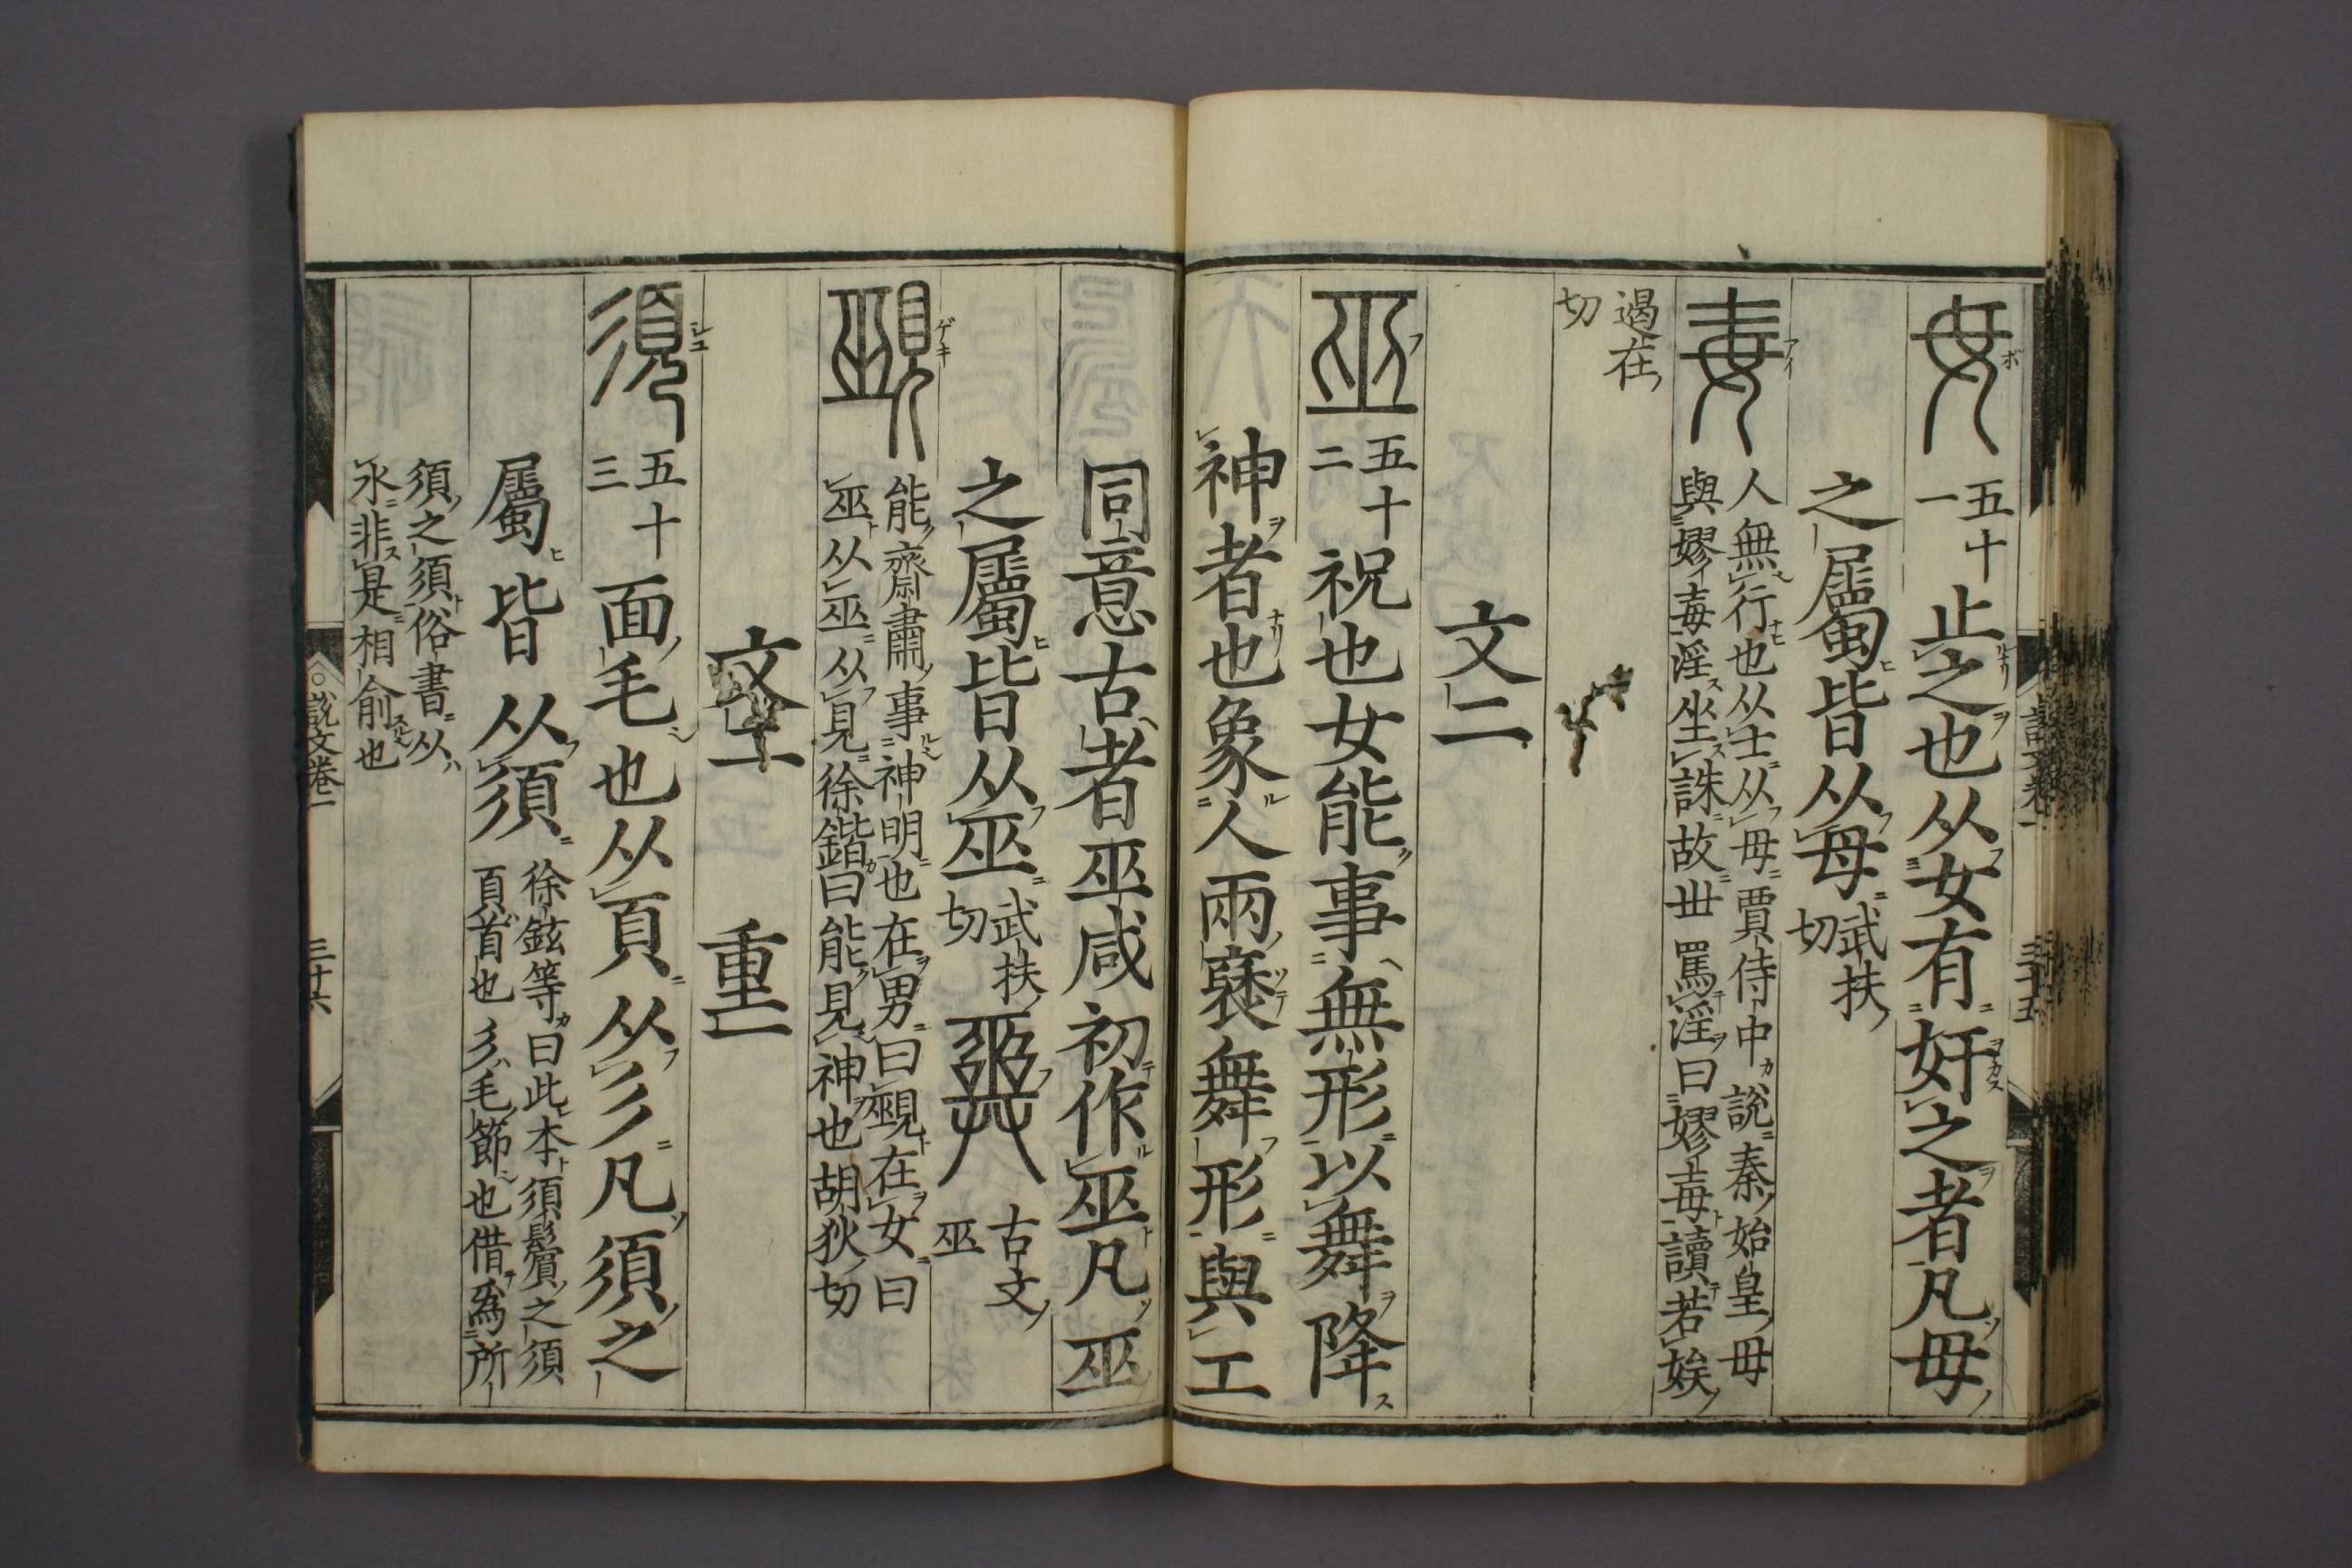 毋 五十一 止之也从女有奸之者凡毋
之屬皆从毋 武扶切
毐 人無行也从士从毋賈侍中說秦始皇毋
與嫪毐淫坐誅故世罵淫曰嫪毐讀若娭
遏在
切
文二
巫 五十二 祝也女能事無形以舞降
神者也象人兩褎舞形與工
同意古者巫咸初作巫凡巫
之屬皆从巫 武扶切 古文巫
覡 能齋肅事神明也在男曰覡在女曰
巫从巫从見徐鍇曰能見神也胡狄切
文二 重一
須 五十三 面毛也从頁从彡凡須之
屬皆从須 徐鉉等曰此本須鬢之須
頁首也彡毛節也借爲所
須之須俗書从
水非是相俞也
說文卷一 三十六